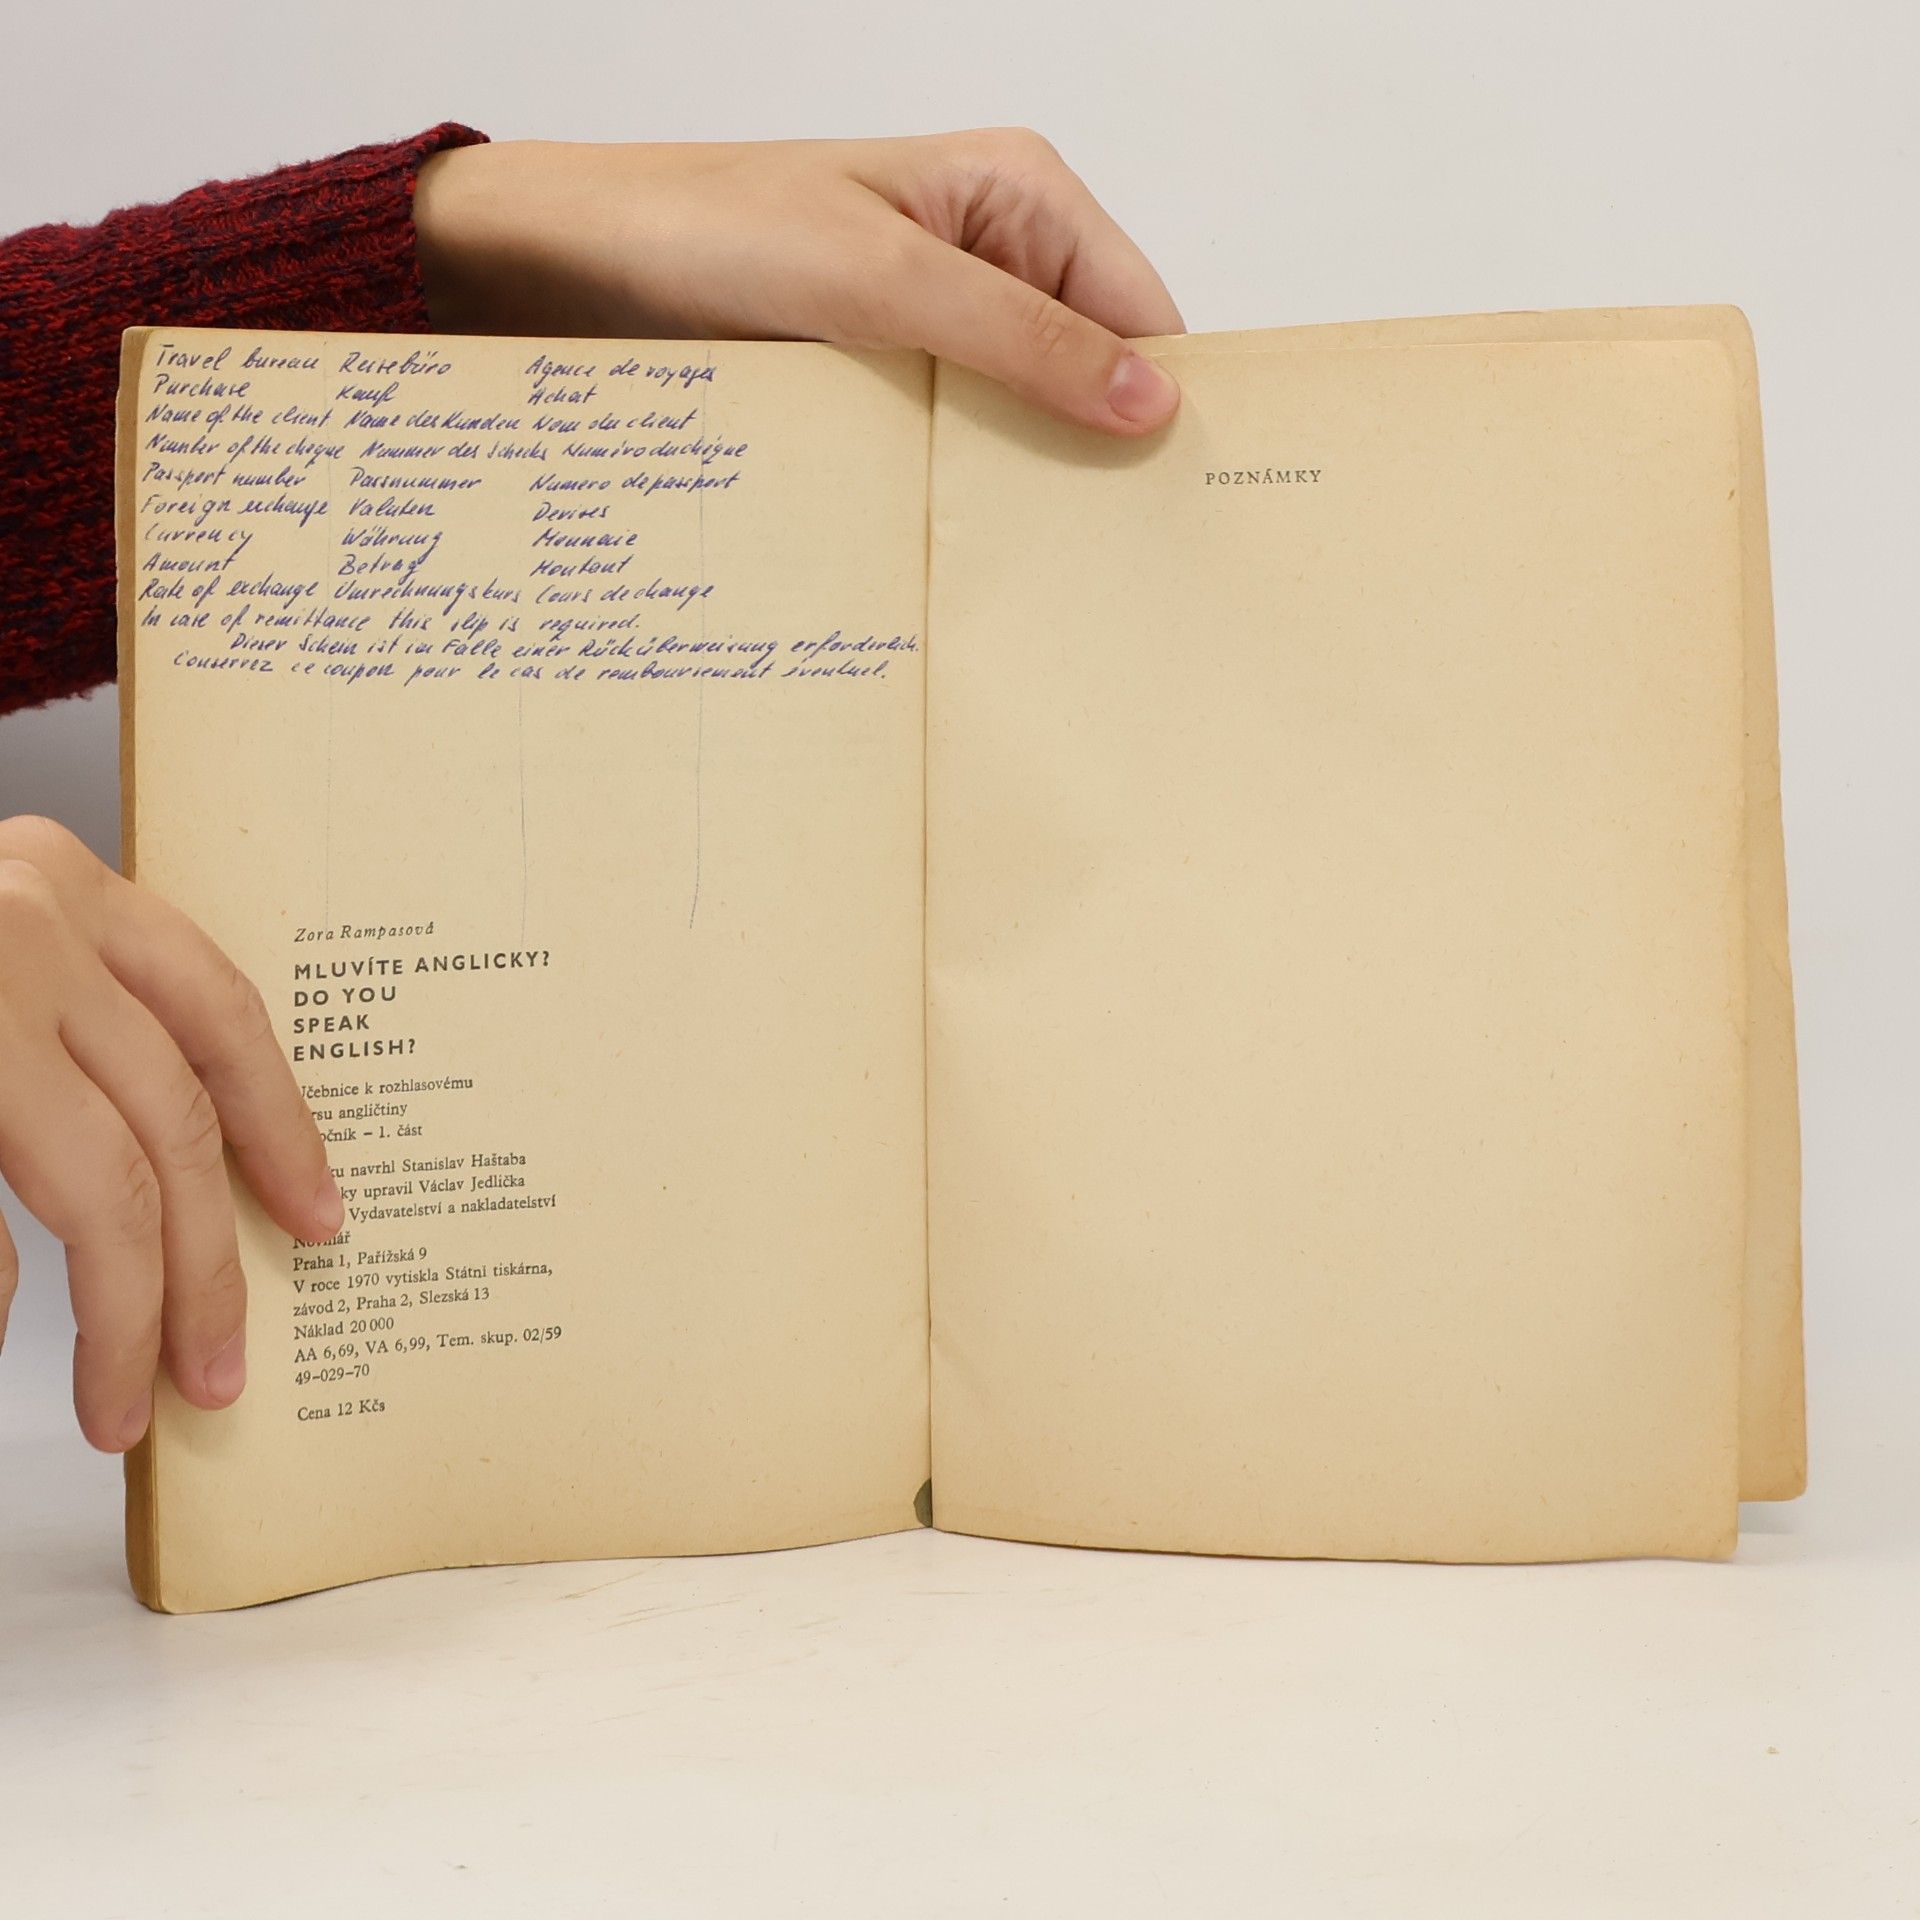 Travel bureau Reisebüro Agence de voyages
Purchase Kauf Achat
Name of the client Name des Kunden Nom du client
Number of the cheque Nummer des Schecks Numéro du chèque
Passport number Passnummer Numero de passport
Foreign exchange Valuten Devises
Currency Währung Monnaie
Amount Betrag Montant
Rate of exchange Umrechnungskurs Cours de change
In case of remittance this slip is required.
Dieser Schein ist im Falle einer Rücküberweisung erforderlich.
Conservez ce coupon pour le cas de remboursement éventuel.
Zora Rampasová
MLUVÍTE ANGLICKY?
DO YOU
SPEAK
ENGLISH?
Učebnice k rozhlasovému
angličtiny
– 1. část
navrhl Stanislav Haštaba
upravil Václav Jedlička
Vydavatelství a nakladatelství
Novinář
Praha 1, Pařížská 9
V roce 1970 vytiskla Státní tiskárna,
závod 2, Praha 2, Slezská 13
Náklad 20 000
AA 6,69, VA 6,99, Tem. skup. 02/59
49–029–70
Cena 12 Kčs
POZNÁMKY